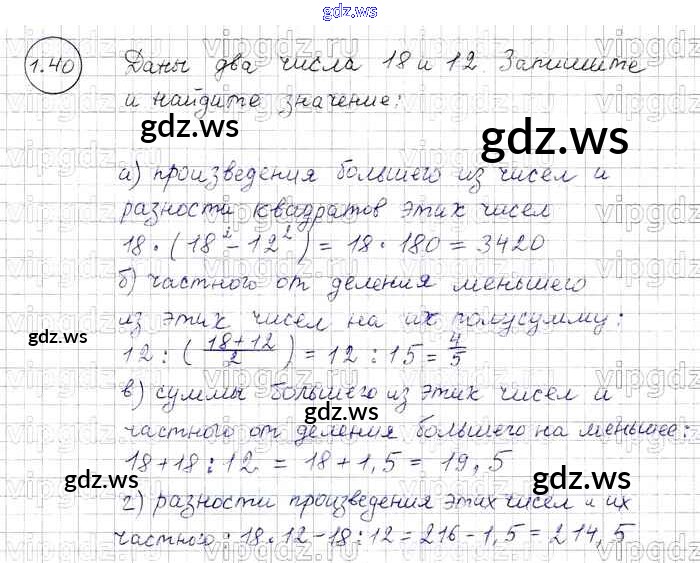 gdz.ws
1.40 Даны два числа 18 и 12 Запишите
и найдите значение:
gdz.ws
gdz.ws
а) произведения большего из чисел и
разности квадратов этих чисел
18 · (18² - 12²) = 18 · 180 = 3420
б) частного от деления меньшего
из этих чисел на их полусумму:
gdz.ws
12 : (18+12/2) = 12 : 15 = 4/5
в) суммы большего из этих чисел и
gdz.ws
частного от деления большего на меньшее:
18 + 18 : 12 = 18 + 1,5 = 19,5
gdz.ws
gdz.ws
г) разности произведения этих чисел и их
частного: 18 · 12 - 18 : 12 = 216 - 1,5 = 214,5